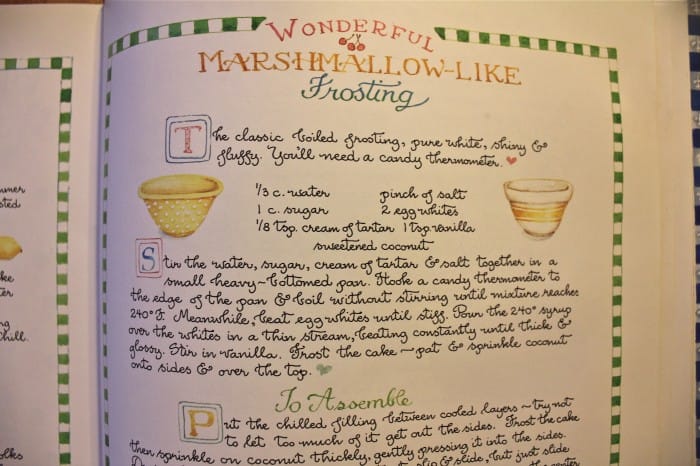 Wonderful
Marshmallow-Like
Frosting
The classic boiled frosting, pure white, shiny &
fluffy. You'll need a candy thermometer.
1/3 c. water
pinch of salt
1 c. sugar
2 egg whites
1/8 tsp. cream of tartar
1 tsp vanilla
sweetened coconut
Stir the water, sugar, cream of tartar & salt together in a
small heavy-bottomed pan. Hook a candy thermometer to
the edge of the pan & boil without stirring until mixture reaches
240°F. Meanwhile, beat egg whites until stiff. Pour the 240° syrup
over the whites in a thin stream, beating constantly until thick &
glossy. Stir in vanilla. Frost the cake – pat & sprinkle coconut
onto sides & over the top.
To Assemble
Put the chilled filling between cooled layers – try not
to let too much of it get out the sides. Frost the cake
then sprinkle on coconut thickly, gently pressing it into the sides.
slip & slide, but just slide
chill.
olks